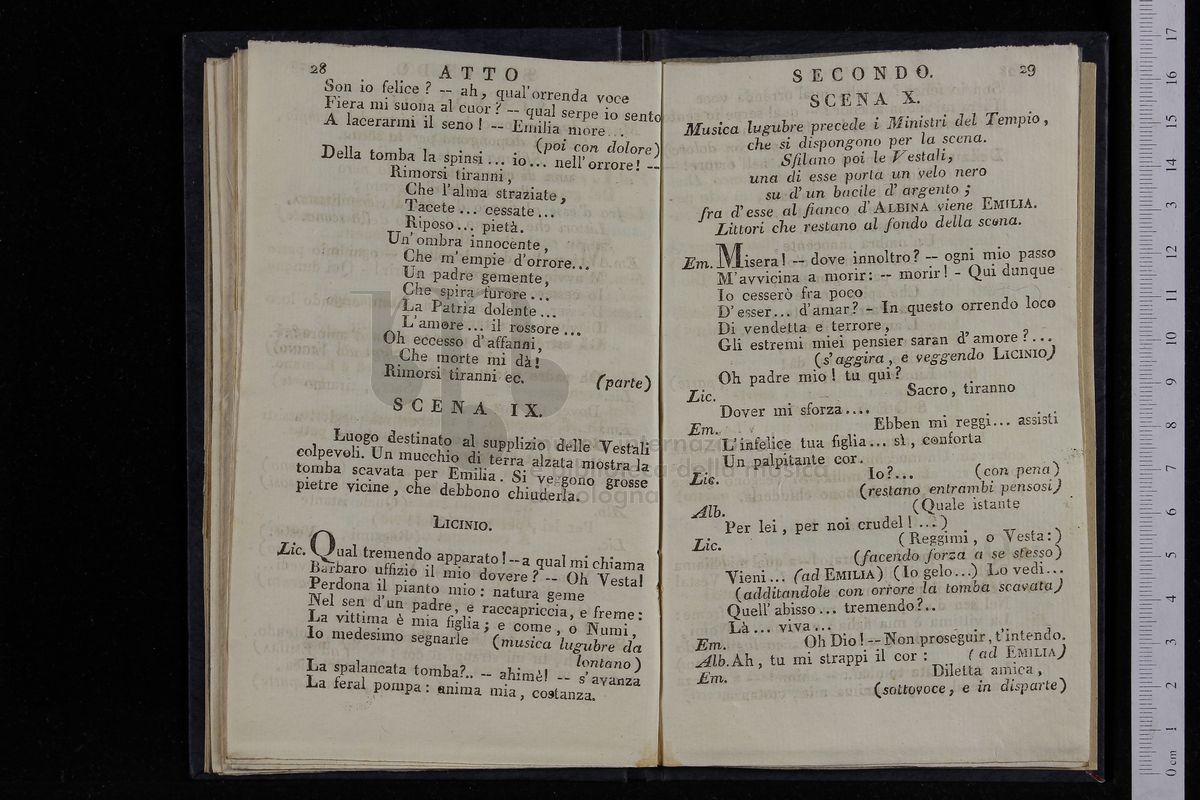 28
ATTO
Son io felice ? -- ah, qual'orrenda voce
Fiera mi suona al cuor ? -- qual serpe io sento
A lacerarmi il seno ! -- Emilia more...
(poi con dolore)
Della tomba la spinsi... io... nell'orrore! --
Rimorsi tiranni,
Che l'alma straziate,
Tacete... cessate...
Riposo... pietà.
Un'ombra innocente,
Che m'empie d'orrore...
Un padre gemente,
Che spira furore...
La Patria dolente...
L'amore... il rossore...
Oh eccesso d'affanni,
Che morte mi dà!
Rimorsi tiranni ec. (parte)
SCENA IX.
Luogo destinato al supplizio delle Vestali
colpevoli. Un mucchio di terra alzata mostra la
tomba scavata per Emilia. Si vegono grosse
pietre vicine, che debbono chiuderla.
LICINIO.
Lic. Qual tremendo apparato! -- a qual mi chiama
Barbaro uffizio il mio dovere? -- Oh Vesta!
Perdona il pianto mio: natura geme
Nel sen d'un padre, e raccapriccia, e freme:
La vittima è mia figlia; e come, o Numi,
Io medesimo segnarle (musica lugubre da
lontano)
La spalancata tomba?.. -- ahimè! -- s'avanza
La feral pompa: anima mia, costanza.
SECONDO.
29
SCENA X.
Musica lugubre precede i Ministri del Tempio,
che si dispongono per la scena.
Sfilano poi le Vestali,
una di esse porta un velo nero
su d'un bacile d'argento;
fra d'esse al fianco d'ALBINA viene EMILIA.
Littori che restano al fondo della scena.
Em. Misera! -- dove innoltro? -- ogni mio passo
M'avvicina a morir: -- morir! - Qui dunque
Io cesserò fra poco
D'esser... d'amar? - In questo orrendo loco
Di vendetta e terrore,
Gli estremi miei pensier saran d'amore?...
(s'aggira, e veggendo LICINIO)
Oh padre mio! tu qui?
Lic. Sacro, tiranno
Dover mi sforza....
Em. Ebben mi reggi... assisti
L'infelice tua figlia... sì, conforta
Un palpitante cor.
Lic. Io?... (con pena)
(restano entrambi pensosi)
Alb. (Quale istante
Per lei, per noi crudel! ...)
Lic. (Reggimi, o Vesta:)
(facendo forza a se stesso)
Vieni... (ad EMILIA) (Io gelo...) Lo vedi...
(additandole con orrore la tomba scavata)
Quell'abisso... tremendo?..
Là... viva...
Em. Oh Dio! -- Non proseguir, t'intendo.
Alb. Ah, tu mi strappi il cor: (ad EMILIA)
Em. Diletta amica,
(sottovoce, e in disparte)
biblioteca della musica
bologna
0 cm 1 2 3 4 5 6 7 8 9 10 11 12 13 14 15 16 17